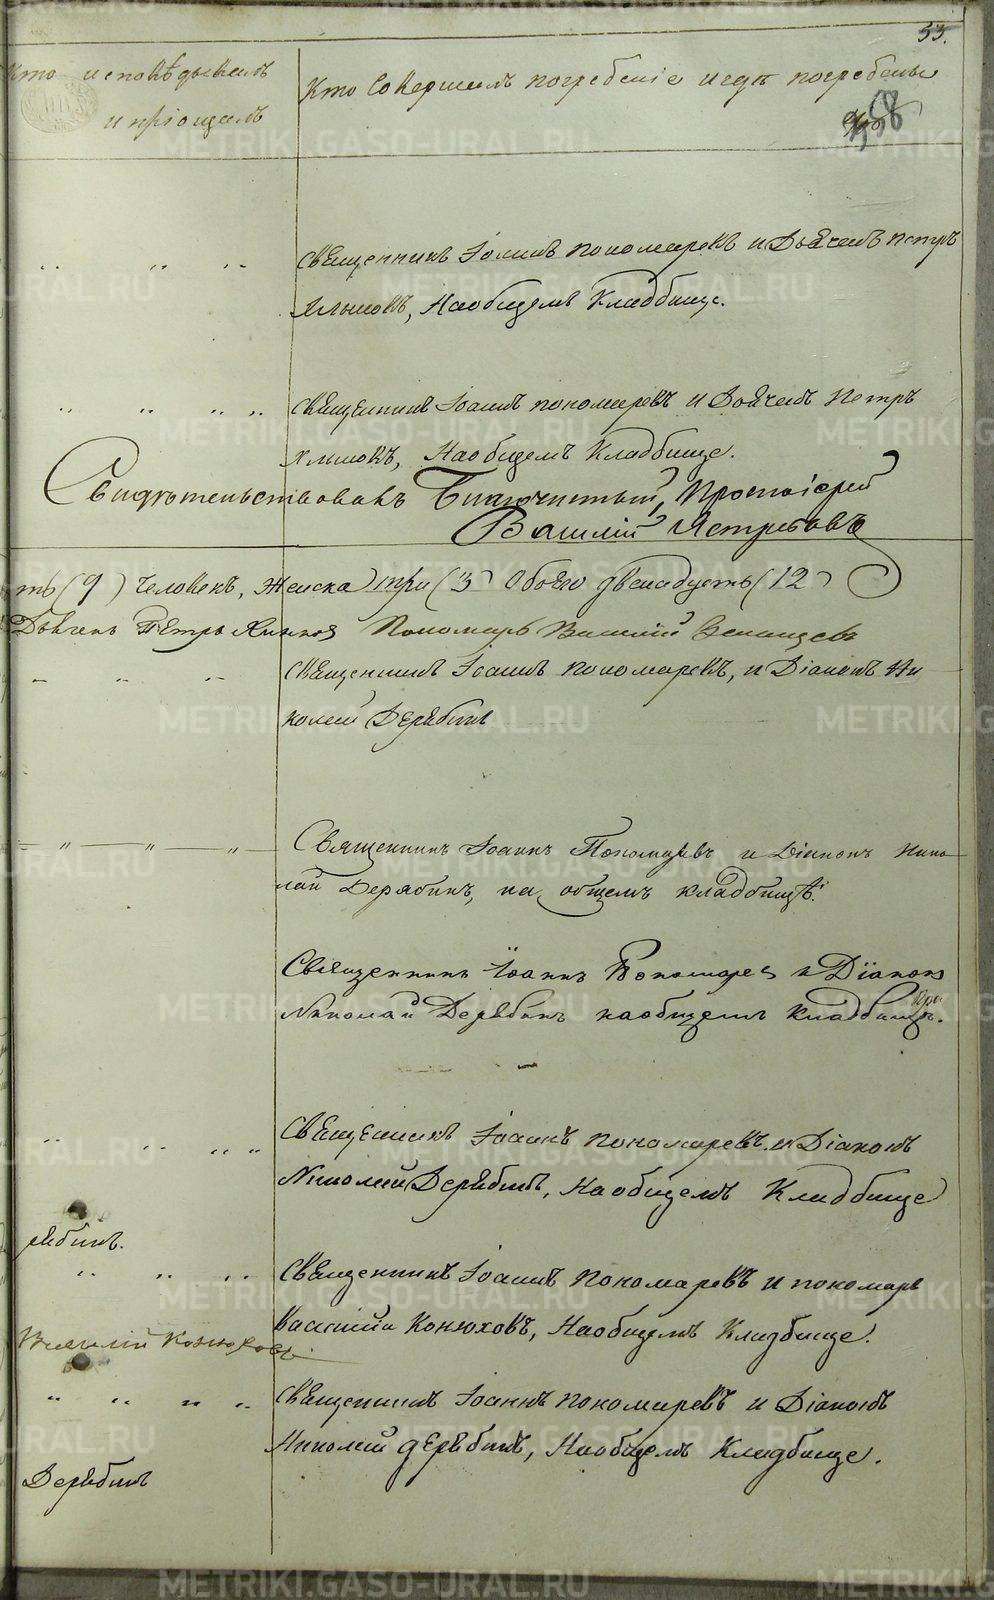 53.
Кто исповѣдывалъ
и пріощалъ
Кто Совершалъ погребеніе и гдѣ погребены
58
Священникъ Іоаннъ Пономаревъ и Дьячекъ Петръ
Хлыновъ, На общемъ Кладбище.
Священникъ Іоаннъ Пономаревъ и Дьячекъ Петръ
Хлыновъ, На общемъ Кладбище.
Свидѣтельствовалъ Благочинный, Протоіерей
Василій Ястребовъ
ть (9) Человекъ, Женска три (3) Обоего двенадцать (12)
Дьячекъ Петръ Пономарь Василій
Священникъ Іоаннъ Пономаревъ, и Діаконъ Ни
колай Дерябинъ
Священникъ Іоаннъ Пономаревъ и Діаконъ Нико
лай Дерябинъ, на общемъ кладбищѣ.
Священникъ Іоаннъ Пономарев и Діаконъ
Николай Дерябинъ на общемъ кладбищѣ.
Священникъ Іоаннъ Пономаревъ и Діаконъ
Николай Дерябинъ, На общемъ Кладбище
рябинъ.
Священникъ Іоаннъ Пономаревъ и пономарь
Василій Конюховъ, На общемъ Кладбище.
Василій Конюховъ
Священникъ Іоаннъ Пономаревъ и Діаконъ
Николай Дерябинъ, На общемъ Кладбище.
Дерябинъ
METRIKI.GASO-URAL.RU